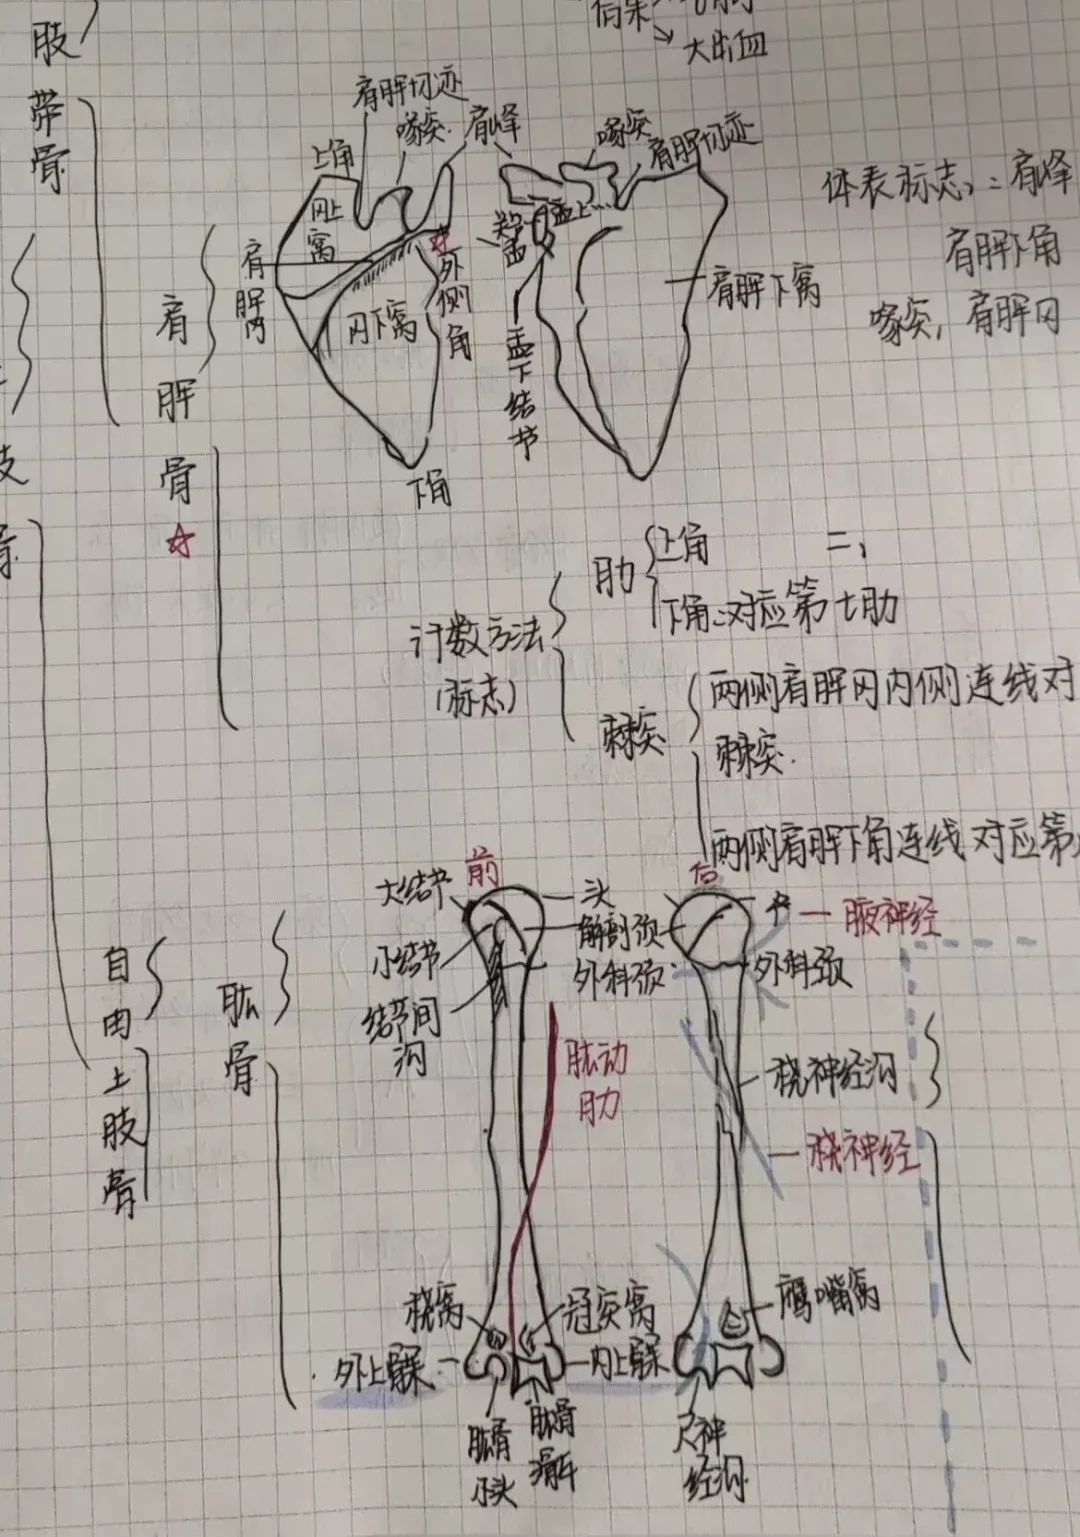 大出血
肢
带
骨
肩胛切迹
喙突
肩峰
上角
冈上
窝
冈下窝
外
侧
角
下角
喙突
肩胛切迹
盂上
盂
下
结
节
肩胛下窝
体表标志:肩峰
肩胛下角
喙突,肩胛冈
肩
胛
骨
计数方法
(标志)
肋
上角
二,
下角:对应第七肋
棘突
两侧肩胛冈内侧连线对
棘突.
两侧肩胛下角连线对应第
自
由
上
肢
骨
肱
骨
前
大结节
小结节
结节间
沟
头
解剖颈
外科颈
肱动
后
腋神经
外科颈
桡神经沟
桡神经
桡窝
冠突窝
外上髁
内上髁
肱骨
小头
肱骨
滑车
鹰嘴窝
尺神
经沟